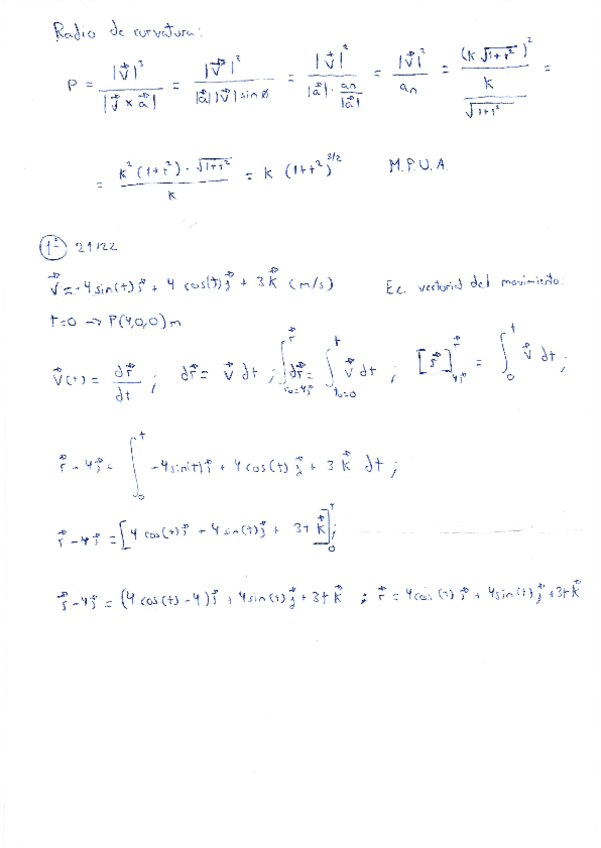 Radio de curvatura:
ρ = |v⃗|³ / |v⃗ x a⃗| = |v⃗|³ / |a⃗||v⃗| sin ø = |v⃗|² / |a⃗| · an/|a⃗| = |v⃗|² / an = (k √1+t²)² / k/√1+t² =
= k² (1+t²) · √1+t² / k = k (1+t²)^3/2 M.P.U.A.
1º 21/22
v⃗ = -4 sin(t) i⃗ + 4 cos(t) j⃗ + 3 k⃗ (m/s) Ec. vectorial del movimiento:
t=0 → P(4,0,0) m
v⃗(t) = dr⃗/dt ; dr⃗ = v⃗ dt ; ∫_{r₀=4i⃗}^{r⃗} dr⃗ = ∫_{t₀=0}^{t} v⃗ dt ; [r⃗]_{4i⃗}^{r⃗} = ∫_0^t v⃗ dt ;
r⃗ - 4i⃗ = ∫_0^t -4 sin(t) i⃗ + 4 cos(t) j⃗ + 3 k⃗ dt ;
r⃗ - 4i⃗ = [4 cos(t) i⃗ + 4 sin(t) j⃗ + 3t k⃗]_0^t ;
r⃗ - 4i⃗ = (4 cos(t) - 4) i⃗ + 4 sin(t) j⃗ + 3t k⃗ ; r⃗ = 4 cos(t) i⃗ + 4 sin(t) j⃗ + 3t k⃗